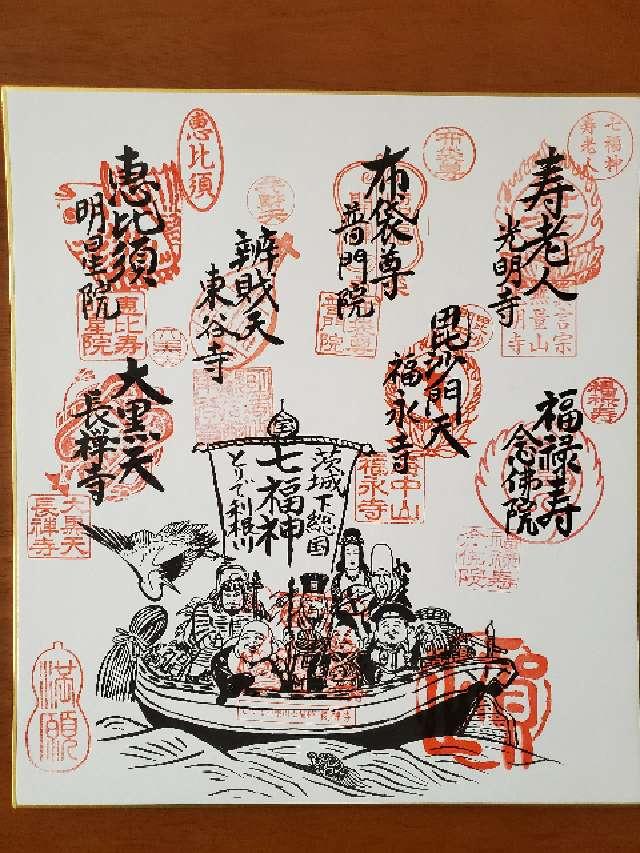 七福神
寿老人
寿老人
光明寺
布袋尊
布袋尊
普門院
恵比須
恵比須
明星院
辨財天
辨賎天
東谷寺
毘沙門天
福永寺
福禄寿
福禄寿
念佛院
大黒天
長禅寺
恵比寿
明星院
普門院
大黒天
長禅寺
福永寺
福禄寿
念佛院
茨城下総国
七福神
とりで利根川
満願